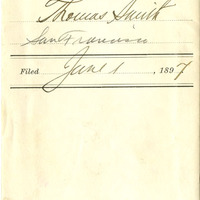 Thomas Smith
San Francisco
Filed June 1, 1897